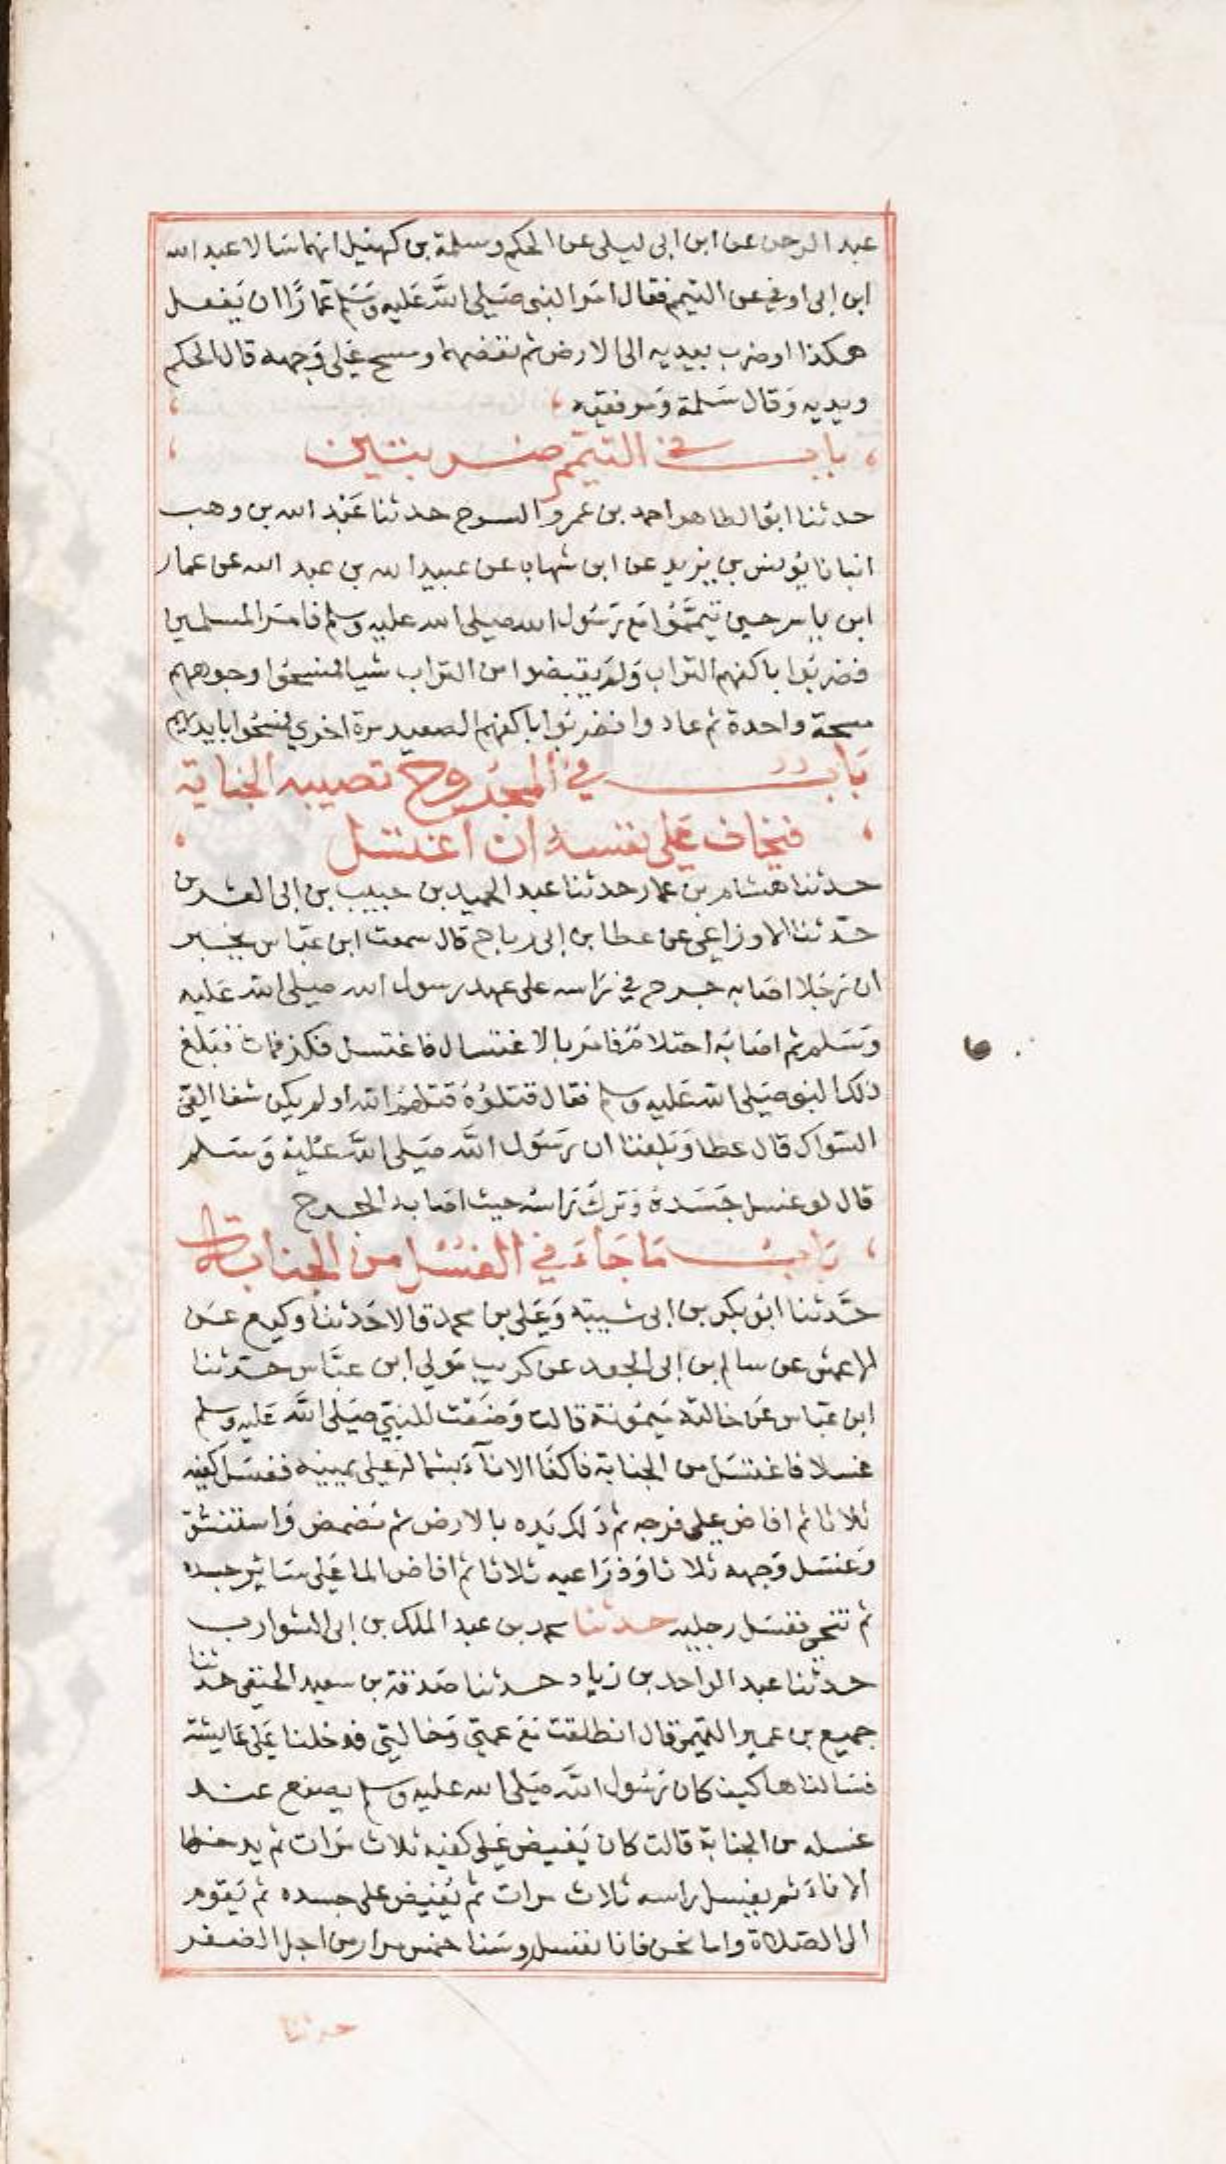 عبد الرحمن عن ابن ابي ليلي عن الحكم وسلمة بن كهيل انهما سالا عبد الله
ابن ابي اوفي عن التيمم فقال امر النبي صَلي اللَّه عَليه وَسَلم عَمارًا ان يَفعل
هكذا او ضرب بيديه الى الارض ثم نفضهما ومسح عَلي وَجهه قال الحكم
ويديه وَقال سَلمة وَمرفقيه
باب في التيمّم ضربتين
حدثنا ابوُ الطاهر احمد بن عَمرو السرح حدثنا عَبْد الله بن وهب
انبانا يُونس بن يزيد عن ابن شهاب عن عبيد الله بن عبد الله عن عمار
ابن ياسر حين تيمَّمُوا مَع رَسُول الله صَلي الله عليه وسلم فامَر المسلمين
فضربُوا باكفهم التراب وَلم يقبضوا من التراب شيا فمسَحوا وجوههم
مسحة واحدة ثم عادوا فضربُوا باكفهم الصعيد مرة اخري فمسَحُوا بايديهم
بَاب في المجدُروح تصيبه الجنابة
فيخاف عَلي نفسه ان اغتسَل
حدثنا هشام بن عمار حدثنا عبد الحميد بن حبيب بن ابي العشرين
حدّثنا الاوزاعي عن عطا بن ابي رباح قال سمعت ابن عَبّاس يخبر
ان رَجُلا اصَابه جرح في رَاسه على عهد رسول الله صَلي الله عَليه
وَسَلم ثم اصَابَه احتلام فامَر بالاغتسال فاغتسل فكز فمات فبَلغ
ذلك النبي صَلي الله عَليه وسلم فقال قتلوُهُ قتلهمُ الله او لم يكن شفا العِيّ
السّوال قال عطا وَبَلغنا ان رَسُول اللَّه صَلي اللَّه عَليْه وَسَلم
قال لو غسل جَسَدهُ وَترك رَاسَه حيث اصَابه الجرح
بَاب مَا جَاءَ في الغسُل من الجنابة
حدَّثنا ابُو بكر بن ابي شيبة وَعَلي بن محمد قالا حَدثنا وكيع عَن
الاعمش عن سالم بن ابي الجعد عن كريب مَولي ابن عبَّاس حدّثنا
ابن عَبّاس عَن خالته مَيمُونة قالت وَضَعْت للنبيّ صَلي اللَّه عَليه وسلم
غسلا فاغتسَل من الجنابة فاكفَا الانآء بشماله على يمينه فغسَل كفيه
ثلاثا ثم افاض علي فرجه ثم دَلك يَده بالارض ثم مَضمض وَاستنشق
وَغسَل وَجهه ثلاثا وَذرَاعيه ثلاثا ثم افاض الما عَلي سَائر جسده
ثم تنحي فغسَل رجليه حدثنا محمد بن عبد الملك بن ابي الشوارب
حدثنا عبد الواحد بن زياد حدثنا صَدقة بن سعيد الحنفي حدّثنا
جميع بن عمير التيمي قال انطلقت مَع عمتي وَخالتي فدخلنا عَلي عَايشة
فسَالناها كيف كان رَسُول اللَّه صَلي الله عليه وسلم يصنع عند
غسله من الجنابة قالت كان يَفيض عَلي كفيه ثلاث مَرات ثم يدخلها
الاناءَ ثم يغسل راسه ثلاث مرات ثم يُفيض على جسده ثم يَقوم
الى الصَلاة واما نحن فانا نغسل روسَنا خمس مرار من اجل الضفر
حدثنا